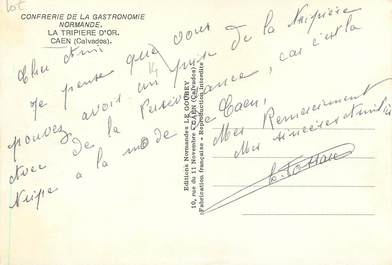 Lot
CONFRERIE DE LA GASTRONOMIE
NORMANDE.
LA TRIPIERE D'OR.
CAEN (Calvados).
Cher Ami
Je pense que vous
pouvez avoir un prix de la Tripière
Avec de la Persévérance, car c'est la
Tripe a la mode de Caen,
Mes Remerciement
Mes sincères Amitiés
Editions Normandes LE GOUBEY
10, rue du 11 Novembre - CAEN (Calvados)
Fabrication française - Reproduction interdite